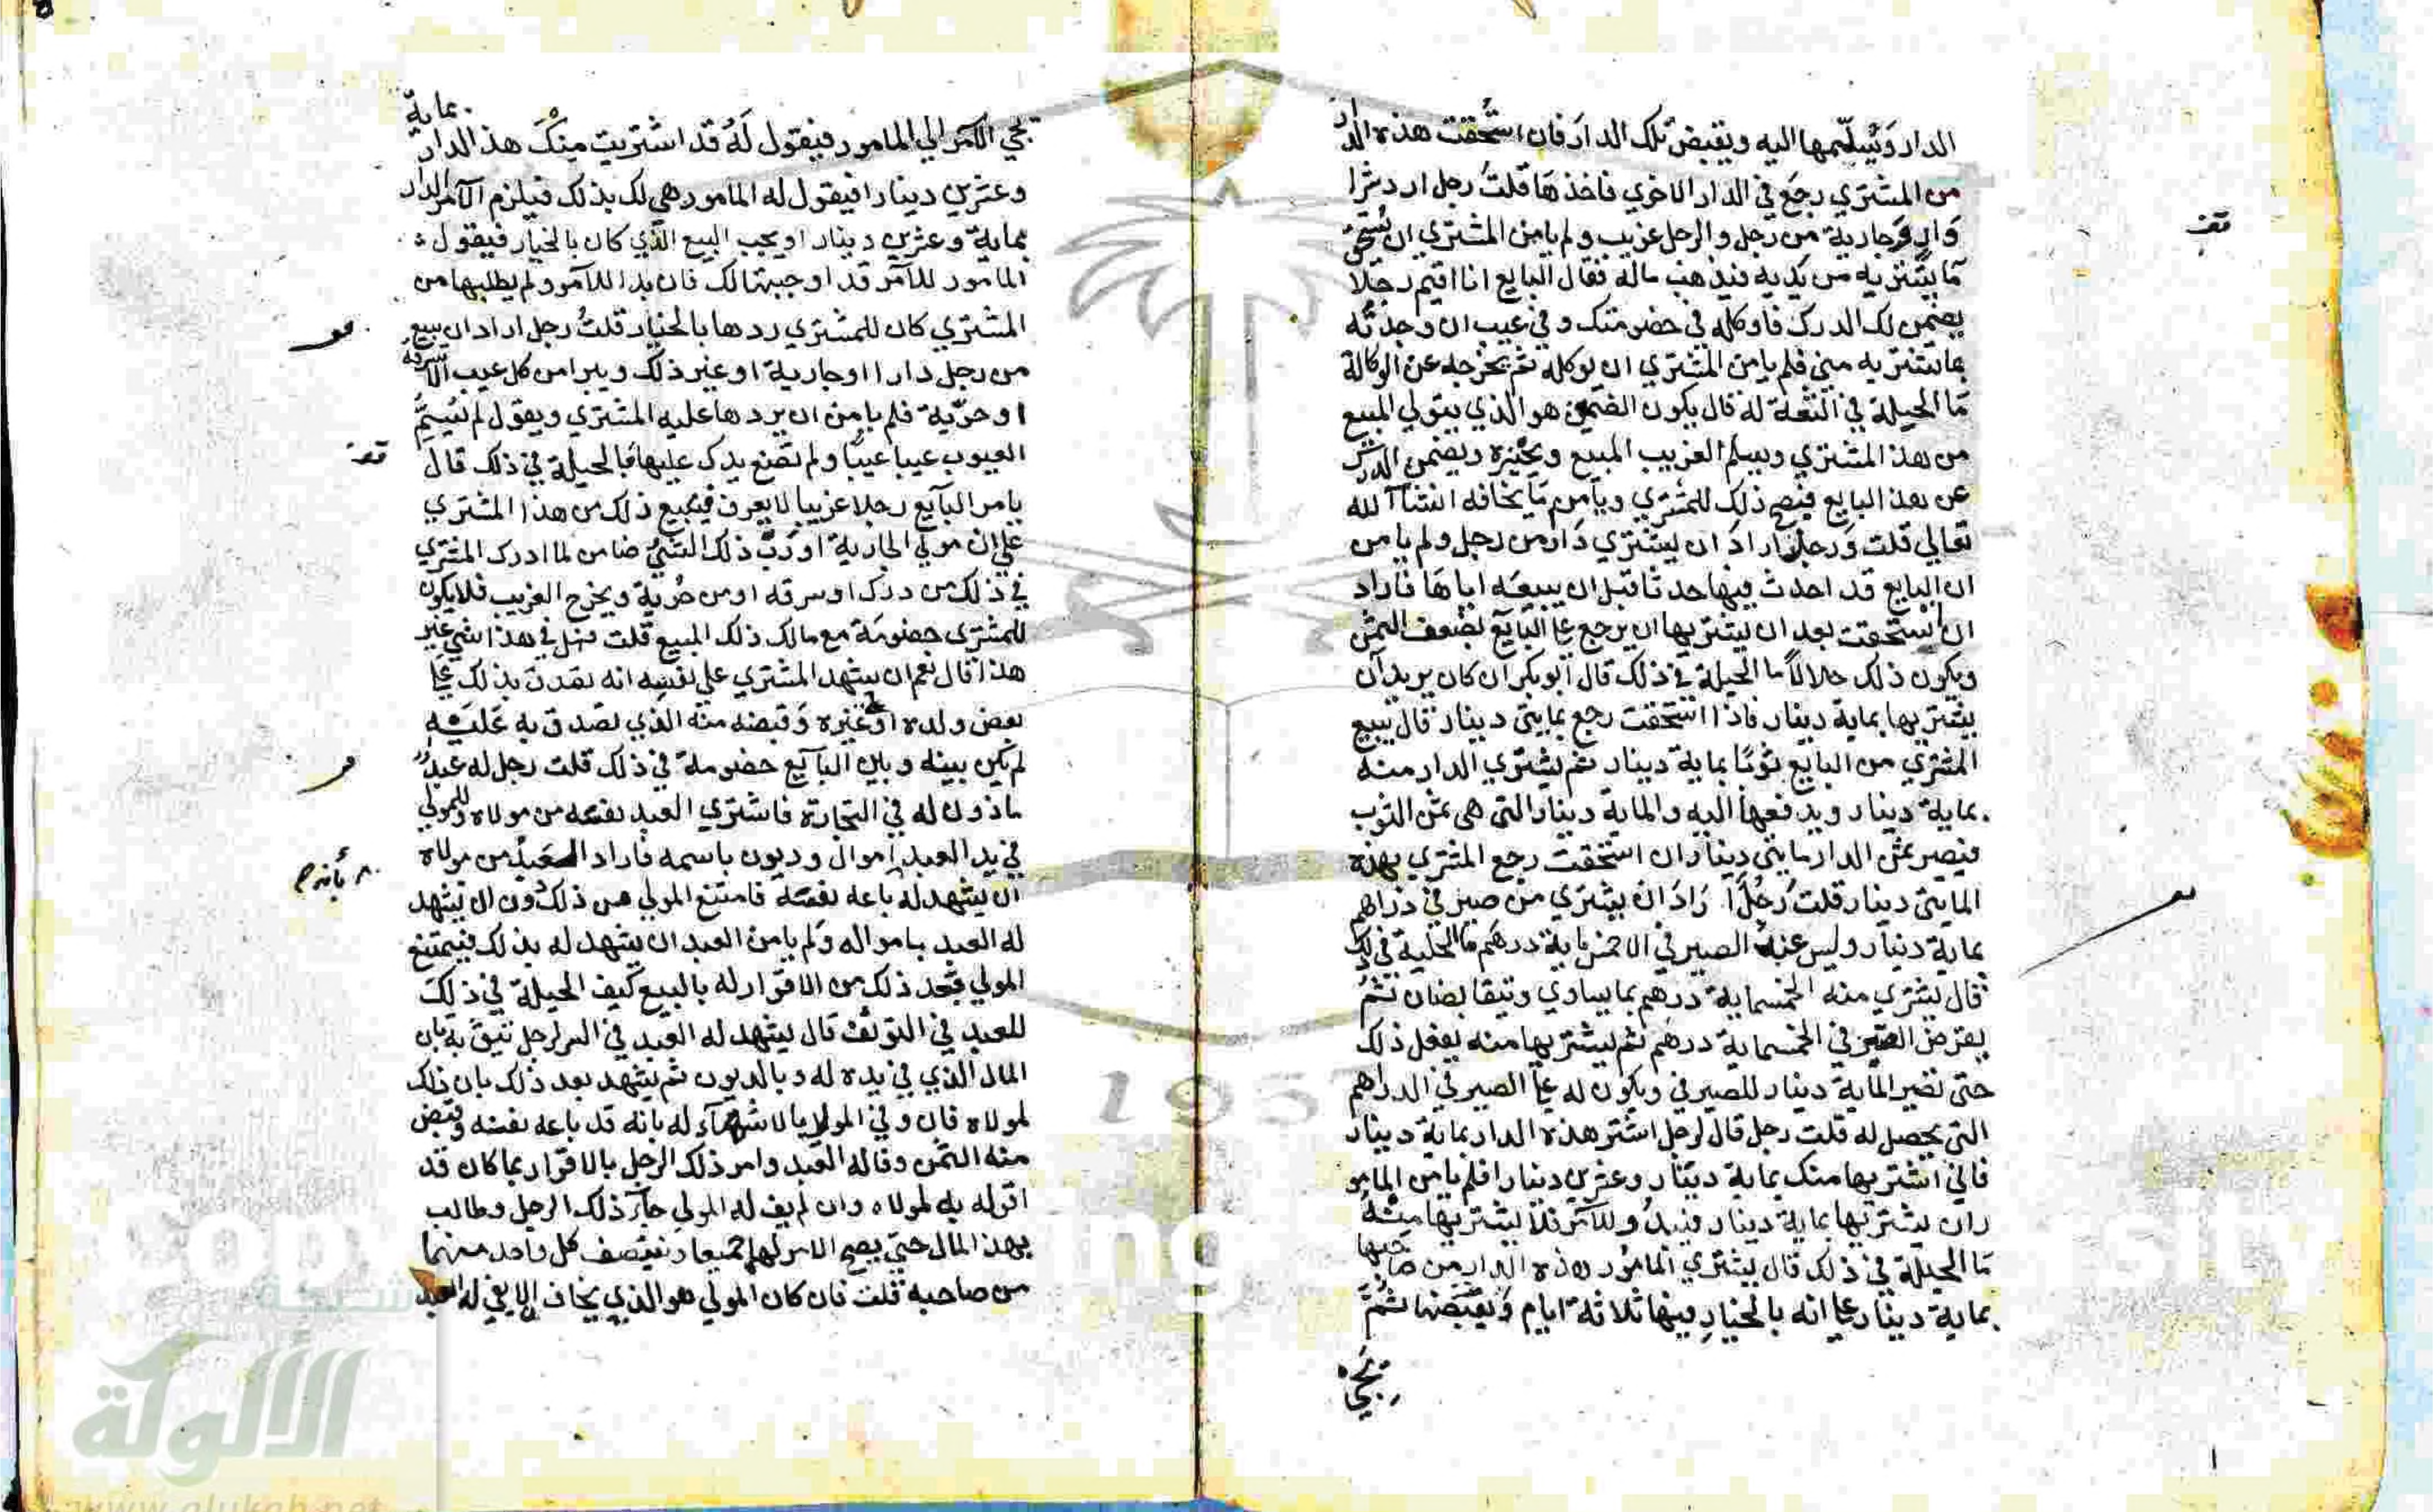 الدار ويسلمها اليه ويقبض تلك الدار فان استحقت هذه الدار
من المشتري رجع في الدار الاخري فاخذها قلت رجل اراد شرا
دار وجارية من رجل والرجل غريب ولم يامن المشتري ان يستحق
ما يشتريه من يديه فيذهب ماله فقال البايع انا اقيم رجلا
يضمن لك الدرك فاوكله في خصومتك وفي عيب ان وجدته
بما تشتريه مني فلم يامن المشتري ان يوكله ثم يخرجه عن الوكالة
ما الحيلة في الثقة له قال يكون الضمين هو الذي يتولي المبيع
من هذ المشتري ويسلم الغريب المبيع ويجيزه ويضمن الدرك
عن هذ البايع فيصح ذلك للمشتري ويامن ما يخافه انشاالله
تعالي قلت ورجل اراد ان يشتري دار من رجل ولم يامن
ان البايع قد احدث فيها حدثا قبل ان يبيعه اياها فاراد
ان استحقت بعد ان يشتريها ان يرجع علي البايع بضعف الثمن
ويكون ذلك حلالا ما الحيلة في ذلك قال ابو بكر ان كان يريد ان
يشتريها بماية دينار فاذا استحقت رجع بمايتي دينار قال يبيع
المشتري من البايع ثوبا بماية دينار ثم يشتري الدار منه
بماية دينار ويدفعها اليه والماية دينار التي هي ثمن الثوب
فيصير ثمن الدار مايتي دينار ان استحقت رجع المشتري بهذه
المايتي دينار قلت رجل اراد ان يشتري من صيرفي دراهم
بماية دينار وليس عند الصيرفي الا خمسماية درهم ما الحيلة في ذلك
قال يشتري منه الخمسماية درهم بما يساوي ويتقابضان ثم
يقرض الصيرفي الخمسماية درهم ثم يشتريها منه يفعل ذلك
حتى تصير الماية دينار للصيرفي ويكون له علي الصيرفي الدراهم
التي يحصل له قلت رجل قال لرجل اشتر هذه الدار بماية دينار
فاني اشتريها منك بماية دينار وعشرين دينارا فلم يامن المامو
ران يشتريها بماية دينار فيبدو للآمر فلا يشتريها منه
ما الحيلة في ذلك قال يشتري المامور هذه الدار من صاحبها
بماية دينار علي انه بالخيار فيها ثلاثة ايام ويقبضها ثم
يجي
يجي الآمر الي المامور فيقول له قد اشتريت منك هذ الدار بماية
وعشرين دينارا فيقول له المامور هي لك بذلك فيلزم الآمر الدار
بماية وعشرين دينار او يجب البيع الذي كان بالخيار فيقول
المامور للآمر قد اوجبتها لك فان بدا للآمر ولم يطلبها من
المشتري كان للمشتري ردها بالخيار قلت رجل اراد ان يبيع
من رجل دارا او جارية او غير ذلك ويبرا من كل عيب الا سرقة
او حرية فلم يامن ان يردها عليه المشتري ويقول لم يسم
العيوب عيبا عيبا ولم تضع يدك عليها فما الحيلة في ذلك قال
يامر البايع رجلا غريبا لا يعرف فيبيع ذلك من هذا المشتري
علي ان مولي الجارية او رب ذلك الشي ضامن لما ادرك المشتري
في ذلك من درك او سرقه او من حرية ويخرج الغريب فلا يكون
للمشتري خصومة مع مالك ذلك المبيع قلت فهل في هذا شي غير
هذا قال نعم ان يشهد المشتري علي نفسه انه تصدق بذلك علي
بعض ولده او غيره وقبضه منه الذي تصدق به عليه
لم يكن بينه وبين البايع خصومة في ذلك قلت رجل له عبد
ماذون له في التجارة فاشتري العبد نفسه من مولاه وللمولي
في يد العبد اموال وديون باسمه فاراد العبد من مولاه
ان يشهد له باعه نفسه فامتنع المولي من ذلك دون ان يشهد
له العبد بامواله ولم يامن العبد ان يشهد له بذلك فيمتنع
المولي بعد ذلك من الاقرار له بالبيع كيف الحيلة في ذلك
للعبد في التوثق قال يشهد له العبد في السر لرجل يثق به بان
المال الذي في يده له وبالديون ثم يشهد بعد ذلك بان ذلك
لمولاه فان وفي المولي بالاشهاد له بانه قد باعه نفسه وقبض
منه الثمن وفا له العبد وامر ذلك الرجل بالاقرار بما كان قد
اقر له به لمولاه وان لم يف له المولي جا ذلك الرجل وطالب
بهذ المال حتي يصح الامر لهما جميعا وينتصف كل واحد منهما
من صاحبه قلت فان كان المولي هو الذي يخاف الا يفي له العبد
قف
قف
شبكة
الألوكة
www.alukah.net
1957